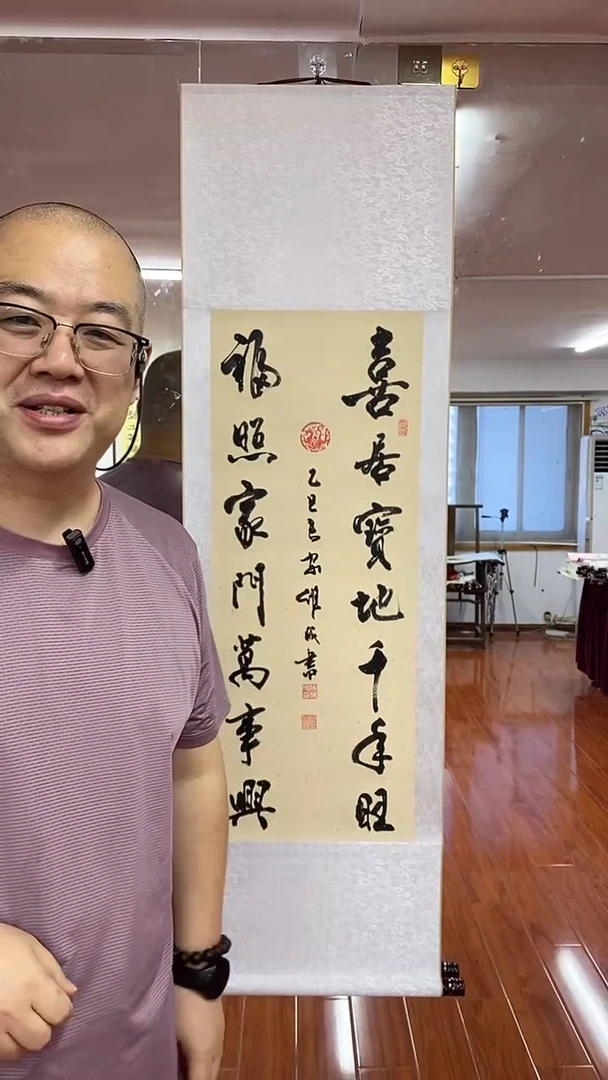 喜居寶地千年旺
福照家門萬事興
乙巳年
書